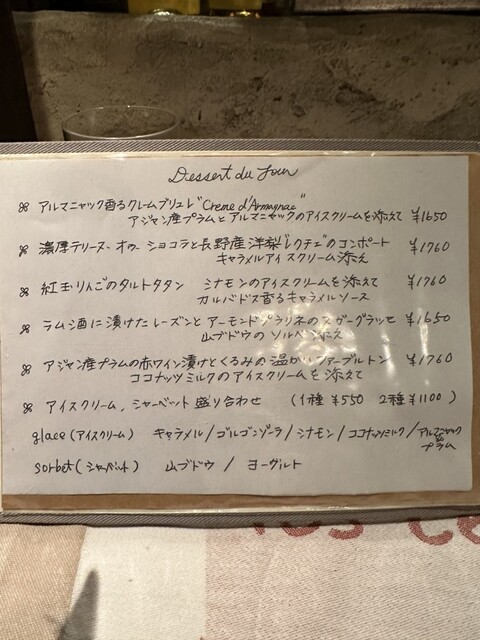 Dessert du Jour
アルマニャック香るクレームブリュレ "Creme d'Armagnac"
アジャン産プラムとアルマニャックのアイスクリームを添えて ¥1650
濃厚テリーヌ・オゥ・ショコラと長野産洋梨"ルレクチェ"のコンポート ¥1760
キャラメルアイスクリーム添え
紅玉りんごのタルトタタン シナモンのアイスクリームを添えて ¥1760
カルバドス香るキャラメルソース
ラム酒に漬けたレーズンとアーモンドプラリネのヌガーグラッセ ¥1650
山ブドウのソルベ添え
アジャン産プラムの赤ワイン漬けとくるみの温かいファーブルトン ¥1760
ココナッツミルクのアイスクリームを添えて
アイスクリーム、シャーベット盛り合わせ (1種 ¥550 2種 ¥1100)
glace (アイスクリーム) キャラメル/ゴルゴンゾーラ/シナモン/ココナッツミルク/アルマニャック&プラム
sorbet (シャーベット) 山ブドウ / ヨーグルト